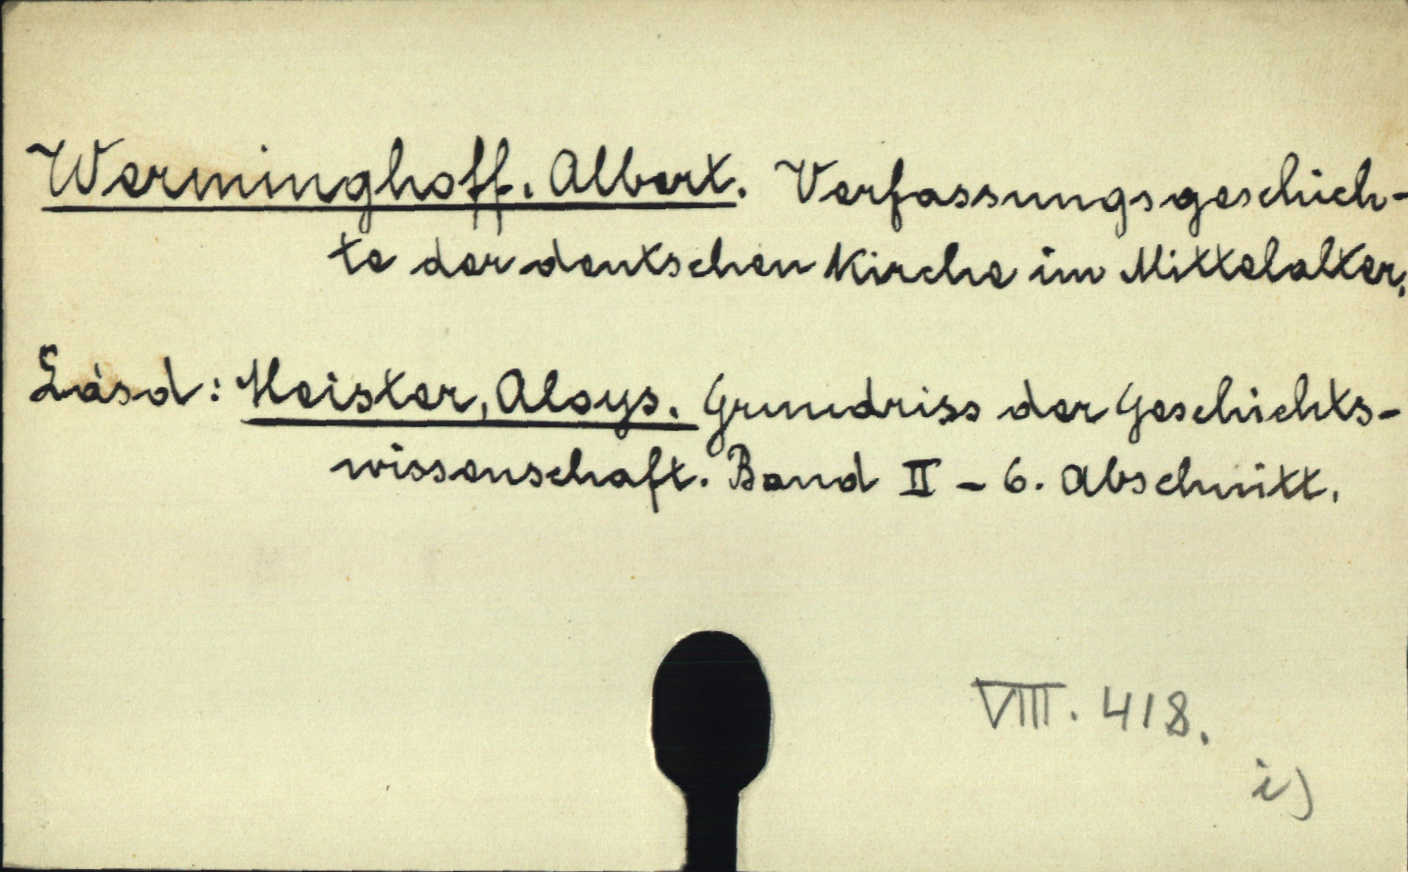 Werminghoff. Albert. Verfassungsgeschich-
te der deutschen Kirche im Mittelalter.
Lásd: Meister, Aloys. Grundriss der Geschichts-
wissenschaft. Band II - 6. Abschnitt.
VIII. 418.
i)